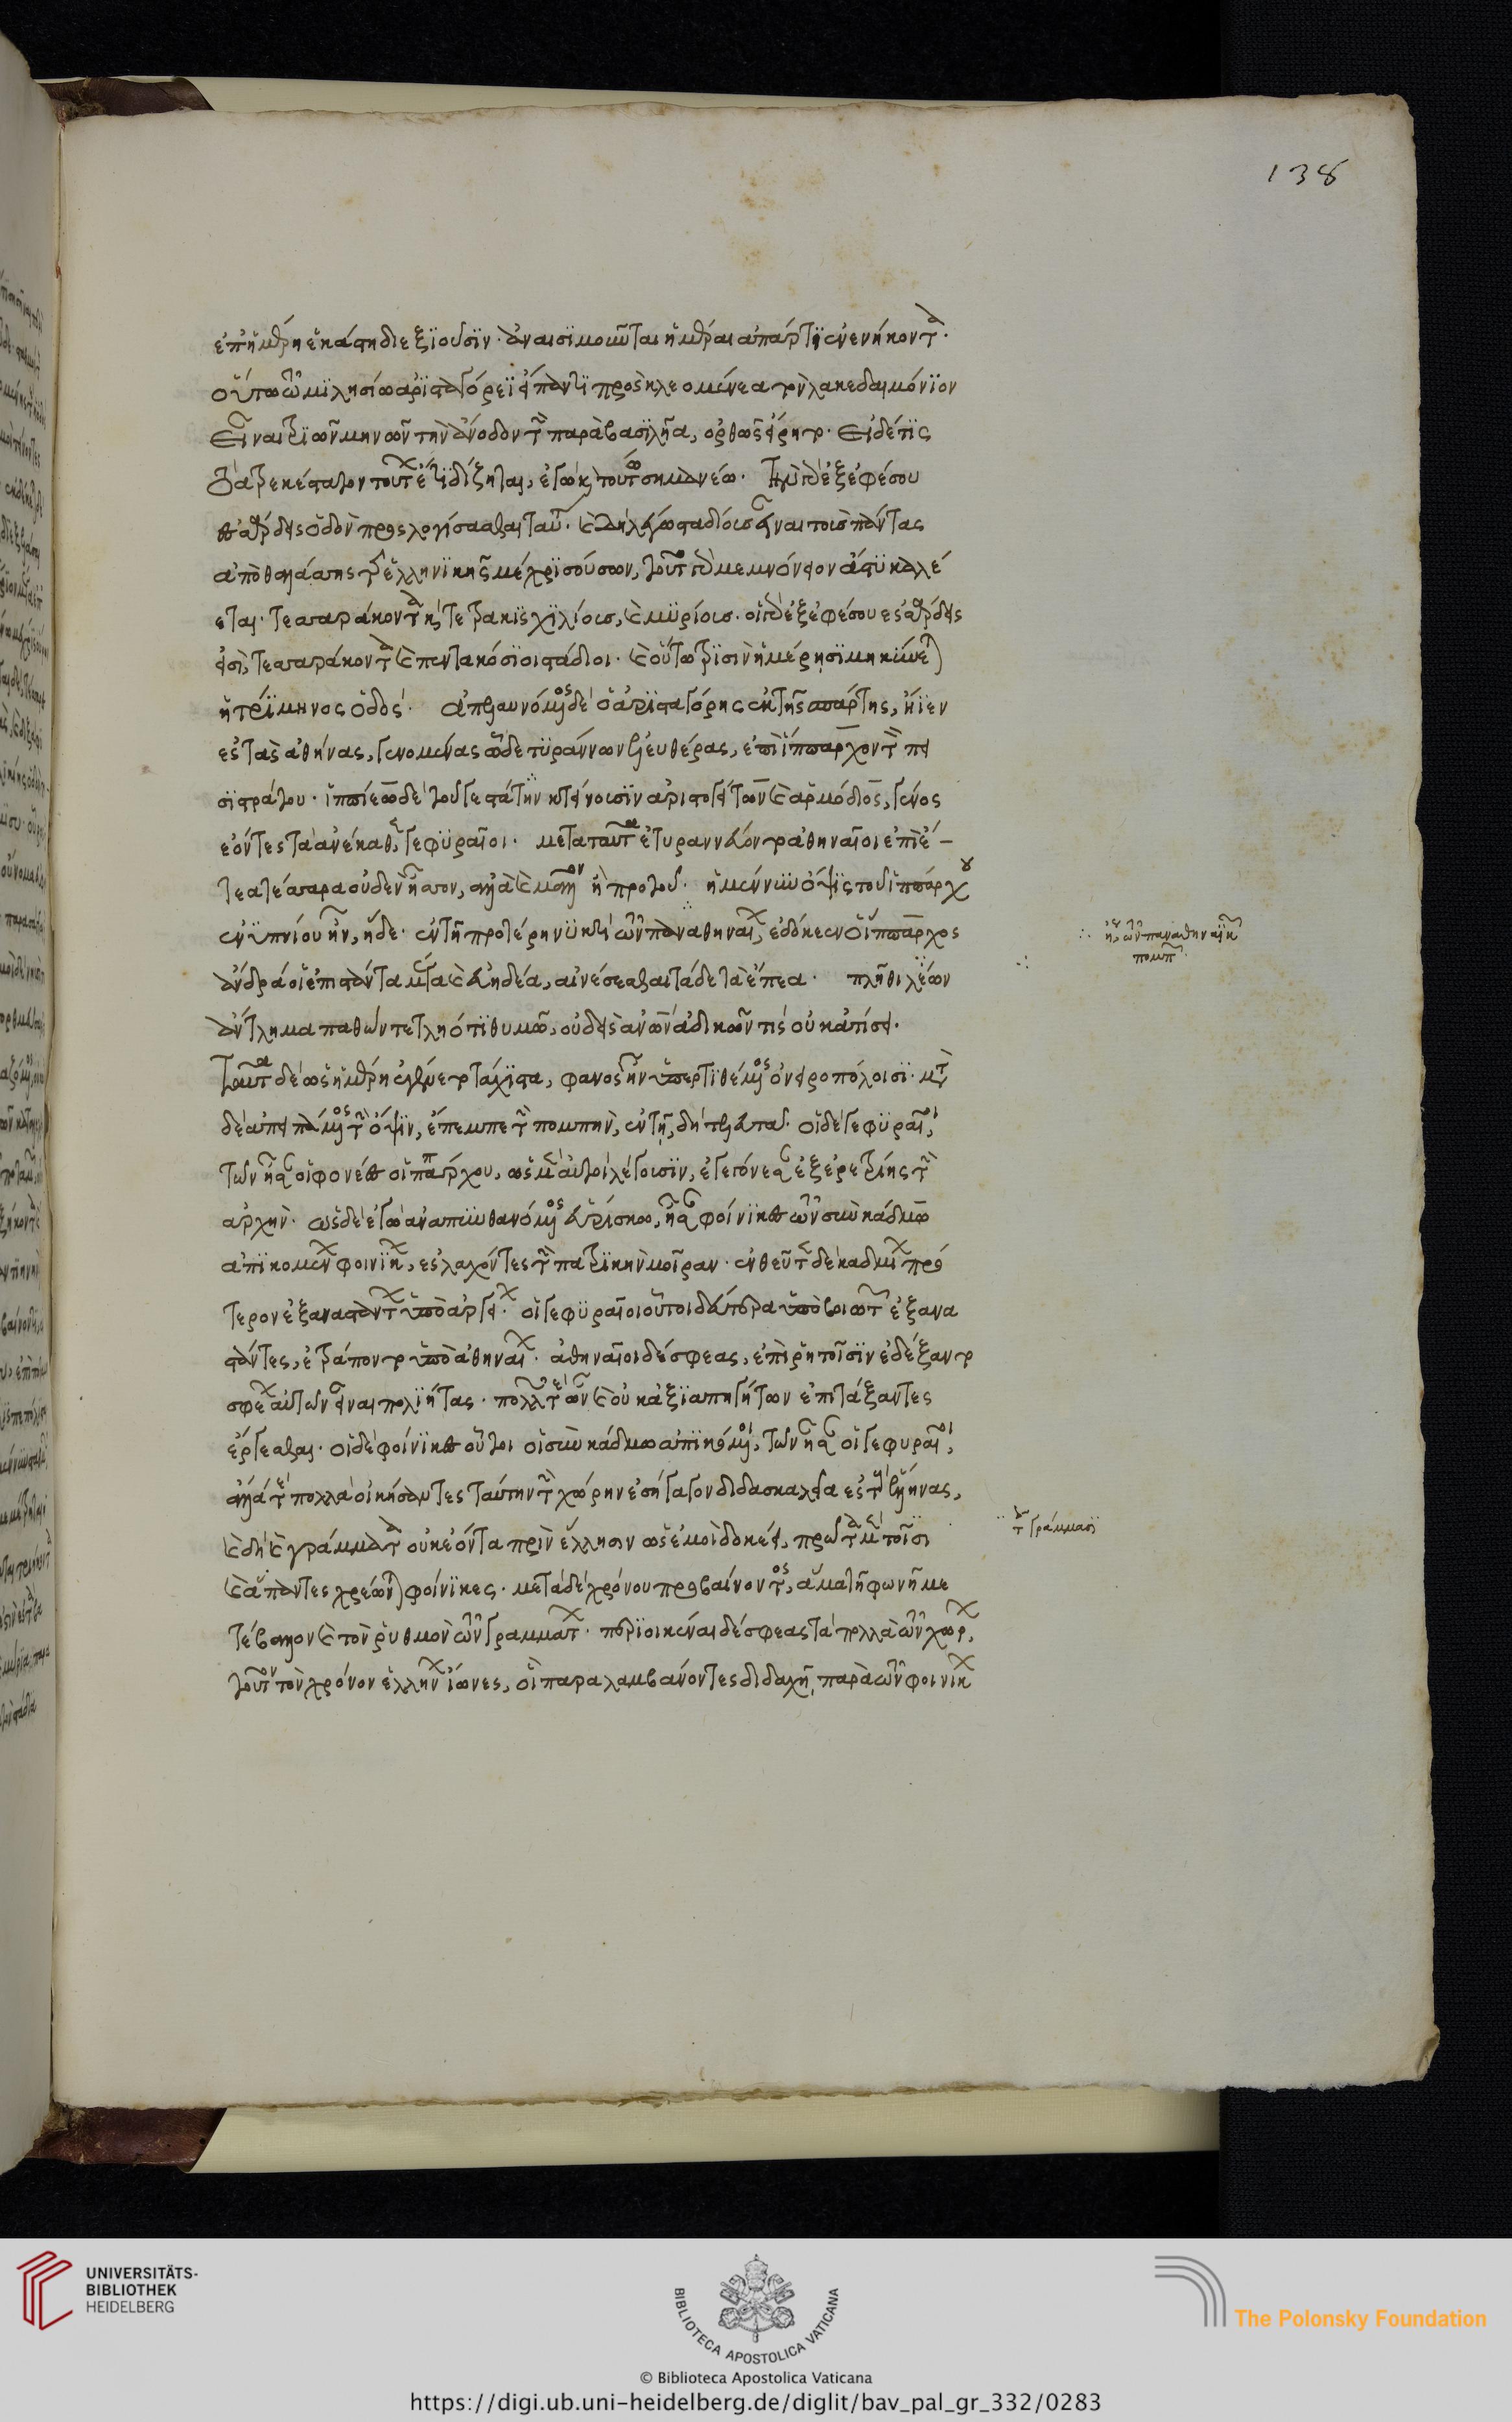 138
ἐπ' ἡμέρη ἑκάστη διεξιοῦσιν· ἀναισιμοῦνται ἡμέραι ἀπαρτὶ ἐνενήκοντα·
οὕτω τῶ μιλησίω ἀρισταγόρεϊ εἴπαντι πρὸς κλεομένεα τὸν λακεδαιμόνιον
εἶναι τριῶν μηνῶν τὴν ἄνοδον τὴν παρὰ βασιλῆα, ὀρθῶς εἴρητο· εἰ δέ τις
τὸ ἀτρεκέστατον τούτων ἔτι δίζηται, ἐγὼ καὶ τοῦτο σημανέω· τὴν γὰρ ἐξ ἐφέσου
ἐς σάρδις ὁδὸν προσλογίσασθαι ταύτη· καὶ δὴ λέγω σταδίους εἶναι τοὺς πάντας
ἀπὸ θαλάσσης τῆς ἑλληνικῆς μέχρι σούσων, τοῦτο γὰρ μεμνόνιον ἄστυ καλέ
εται· τεσσαράκοντα καὶ τετρακισχιλίους, καὶ μυρίους· οἱ γὰρ ἐξ ἐφέσου ἐς σάρδις
εἰσὶ, τεσσαράκοντα καὶ πεντακόσιοι στάδιοι· καὶ οὕτω τρισὶν ἡμέρησι μηκύνεται
ἡ τρίμηνος ὁδός· ἀπελαυνόμενος δὲ ὁ ἀρισταγόρης ἐκ τῆς σπάρτης, ἤιεν
ἐς τὰς ἀθήνας, γενομένας ὧδε τυράννων ἐλευθέρας, ἐπεὶ ἵππαρχον τὸν πει
σιστράτου· ἱππίεω δὲ τοῦ τυράννου ἀδελφεὸν κτείνουσιν ἀριστογείτων καὶ ἁρμόδιος, γένος
ἐόντες τὰ ἀνέκαθεν γεφυραῖοι· μετὰ ταῦτα ἐτυραννεύοντο ἀθηναῖοι ἐπ' ἔ-
τεα τέσσαρα οὐδὲν ἧσσον, ἀλλὰ καὶ μᾶλλον ἢ προτοῦ· ἡ μέν νυν ὄψις τοῦ ἱππάρχου
ἐνυπνίου ἦν, ἥδε· ἐν τῆ προτέρη νυκτὶ τῶν παναθηναίων, ἐδόκεεν ὁ ἵππαρχος
ἄνδρα οἱ ἐπιστάντα μέγα καὶ εὐειδέα, αἰνίσσεσθαι τάδε τὰ ἔπεα· τλῆθι λέων
ἄτλητα παθὼν τετληότι θυμῶ, οὐδεὶς ἀνθρώπων ἀδικῶν τίσιν οὐκ ἀποτίσει·
ταῦτα δὲ ὡς ἡμέρη ἐγένετο τάχιστα, φανερὸς ἦν ὑπερτιθέμενος ὀνειροπόλοισι· μετὰ
δὲ ἀπειπάμενος τὴν ὄψιν, ἔπεμπε τὴν πομπὴν, ἐν τῆ, δὴ τελευτᾶ· οἱ δὲ γεφυραῖοι,
τῶν ἦσαν οἱ φονέες οἱ ἱππάρχου, ὡς μὲν αὐτοὶ λέγουσιν, ἐγεγόνεσαν ἐξ ἐρετρίης τὴν
ἀρχήν· ὡς δὲ ἐγὼ ἀναπυνθανόμενος εὑρίσκω, ἦσαν φοίνικες τῶν σὺν κάδμω
ἀπικομένων φοινίκων, ἐς λαχόντες τὴν παρίκην μοῖραν· ἐνθεῦτεν δὲ καδμείων πρό
τερον ἐξαναστάντων ὑπὸ ἀργείων· οἱ γεφυραῖοι οὗτοι δεύτερα ὑπὸ βοιωτῶν ἐξανα
στάντες, ἐτράποντο ὑπὸ ἀθηναίων· ἀθηναῖοι δέ σφεας, ἐπὶ ῥητοῖσιν ἐδέξαντο
σφέων αὐτῶν εἶναι πολιήτας· πολλῶν τέων καὶ οὐκ ἀξιαπηγήτων ἐπιτάξαντες
ἔργεσθαι· οἱ δὲ φοίνικες οὗτοι οἱ σὺν κάδμω ἀπικόμενοι, τῶν ἦσαν οἱ γεφυραῖοι,
ἄλλά τε πολλὰ οἰκήσαντες ταύτην τὴν χώρην ἐσήγαγον διδασκαλεῖα ἐς τοὺς ἕλληνας,
καὶ δὴ καὶ γράμματα οὐκ ἐόντα πρὶν ἕλλησιν ὡς ἐμοὶ δοκεῖ, πρῶτα μὲν τοῖσι
καὶ ἅπαντες χρέωνται φοίνικες· μετὰ δὲ χρόνου προβαίνοντος, ἅμα τῆ φωνῆ με
τέβαλον καὶ τὸν ῥυθμὸν τῶν γραμμάτων· περιοίκεον δέ σφεας τὰ πολλὰ τῶν χώρων,
τοῦτον τὸν χρόνον ἑλλήνων ἴωνες, οἳ παραλαμβάνοντες διδαχῆ παρὰ τῶν φοινίκων
παναθηναϊκ
πομπ
γράμμασι
UNIVERSITÄTS-
BIBLIOTHEK
HEIDELBERG
BIBLIOTECA APOSTOLICA VATICANA
The Polonsky Foundation
© Biblioteca Apostolica Vaticana
https://digi.ub.uni-heidelberg.de/diglit/bav_pal_gr_332/0283